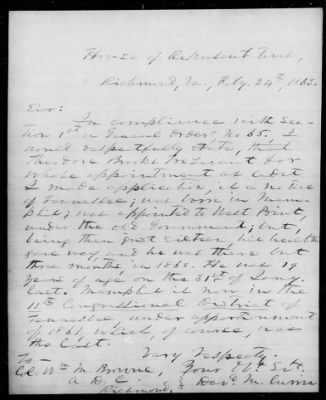 House of Representatives,
Richmond, Va., Feby. 24th, 1863.
Sir:
In compliance with Sec-
tion 1st in General Orders No 65. I
would respectfully state, that
Theodore Brooks for
whose appointment as cadet
I made application, is a native
of Tennessee; was born in Mem-
phis; was appointed to West Point,
under the old Government; but,
being then just sixteen, his health
gave way, and he was there but
three months, in 1860. He was 19
years of age on the 31st of Jany.
last. Memphis is now in the
11th Congressional District of
Tennessee, under apportionment
of 1861, which, of course, was
the last.
Very Respectfy.
To Your Obt. Svt.
Col. Wm M. Browne, David M. Currin
A. D. C.
Richmond,